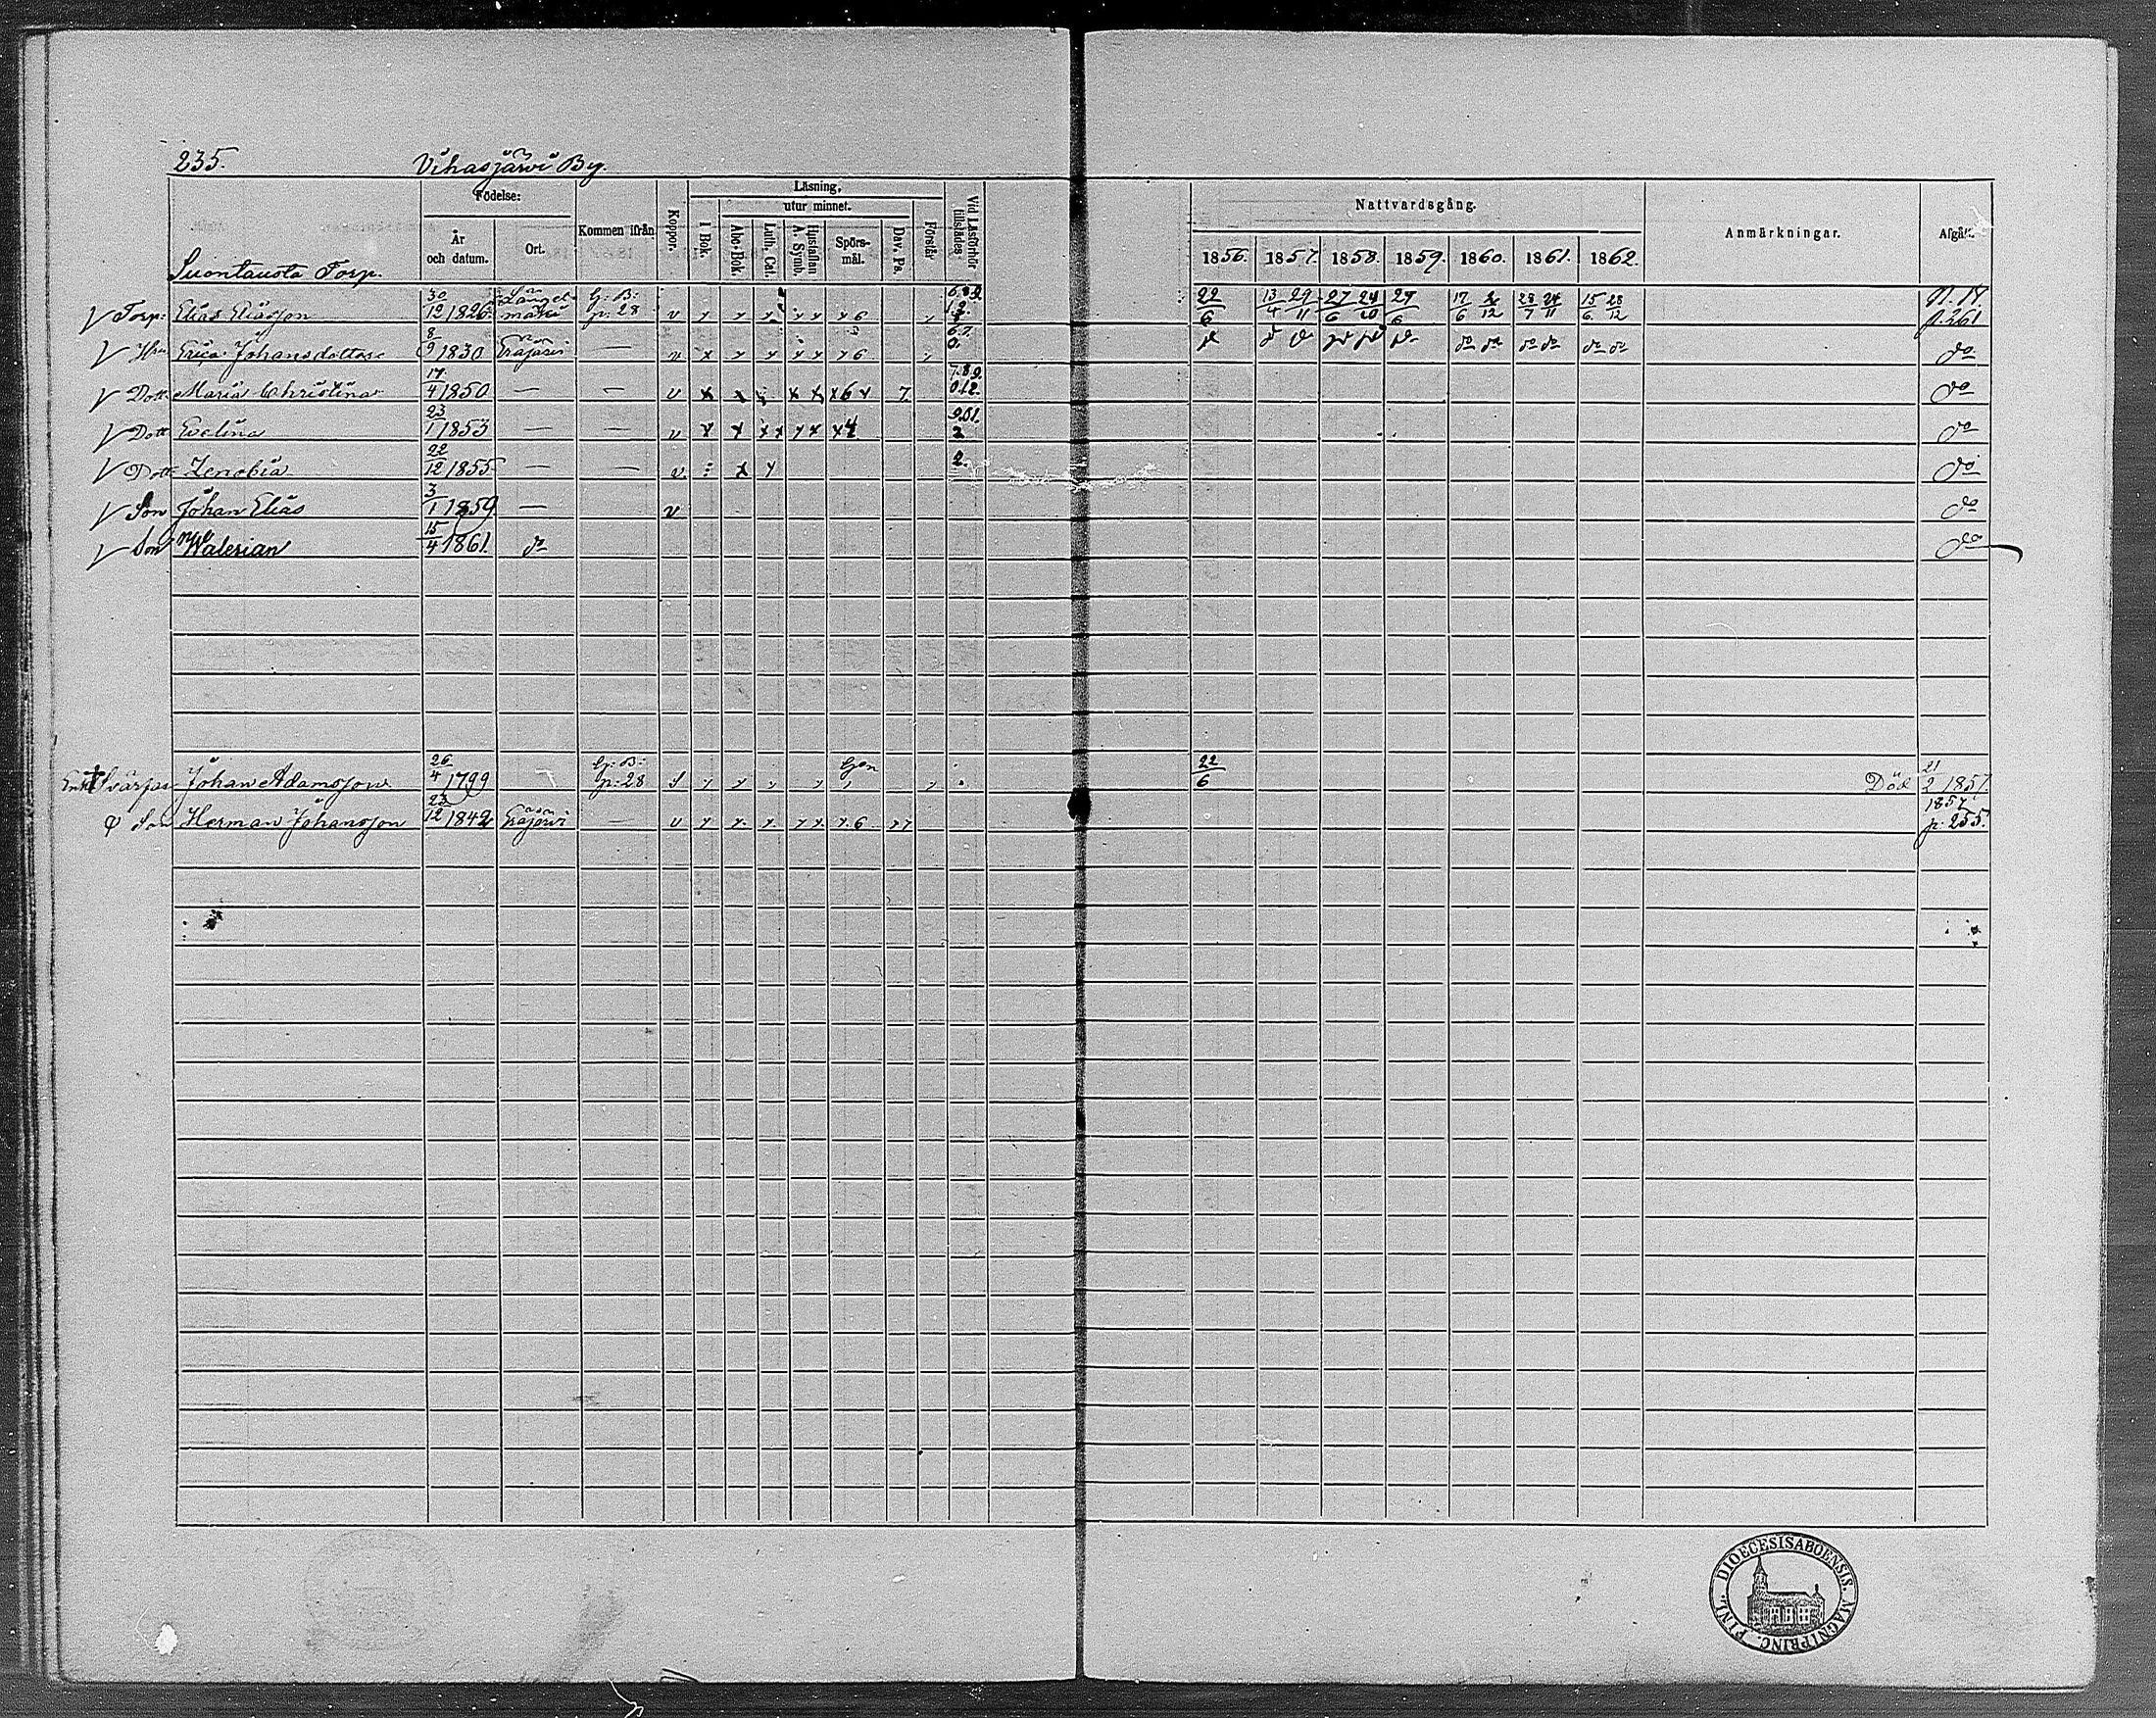 235. Vihasjärvi By.
Suontausta Torp.
Födelse: År och datum. Ort. Kommen ifrån Koppor. Läsning, I Bok. utur minnet. Abc-Bok. Luth. Cat. Hustaflan A. Symb. Spörs-mål. Dav. Ps. Förstår Vid Läsförhör tillstädes Nattvardsgång. 1856. 1857. 1858. 1859. 1860. 1861. 1862. Anmärkningar. Afgått.
V Torp: Elias Eliasson 30/12 1826 Längelmäki G: B: p: 28 v 22/6 13/4 29/11 27/6 24/10 27/6 17/6 2/12 28/7 24/11 15/6 28/12 N. 18. p. 261
V Hu Erica Johansdotter 8/9 1830 Eräjärvi — v x x x x x x 6 do do do do do do do
V Dott Maria Christina 17/4 1850 — — v x x x x x 6 x 7. 7.8.9. 0.1.2. do
V Dott Evelina 23/1 1853 — — v x x x x x x x 4 9.0.1. 2 do
V Dott Zenobia 22/12 1855 — — v. x 2. do
V Son Johan Elias 3/1 1859 — v do
V Son Walerian 15/4 1861. do do
Enkl Svärfar Johan Adamsson 26/4 1799 G: B: p: 28 22/6 Död 21/2 1857.
Son Herman Johansson 23/12 1842 Eräjärvi — v 6 1857 p. 255.
DIOECESIS ABOENSIS. MAGNI PRINC. FINL.